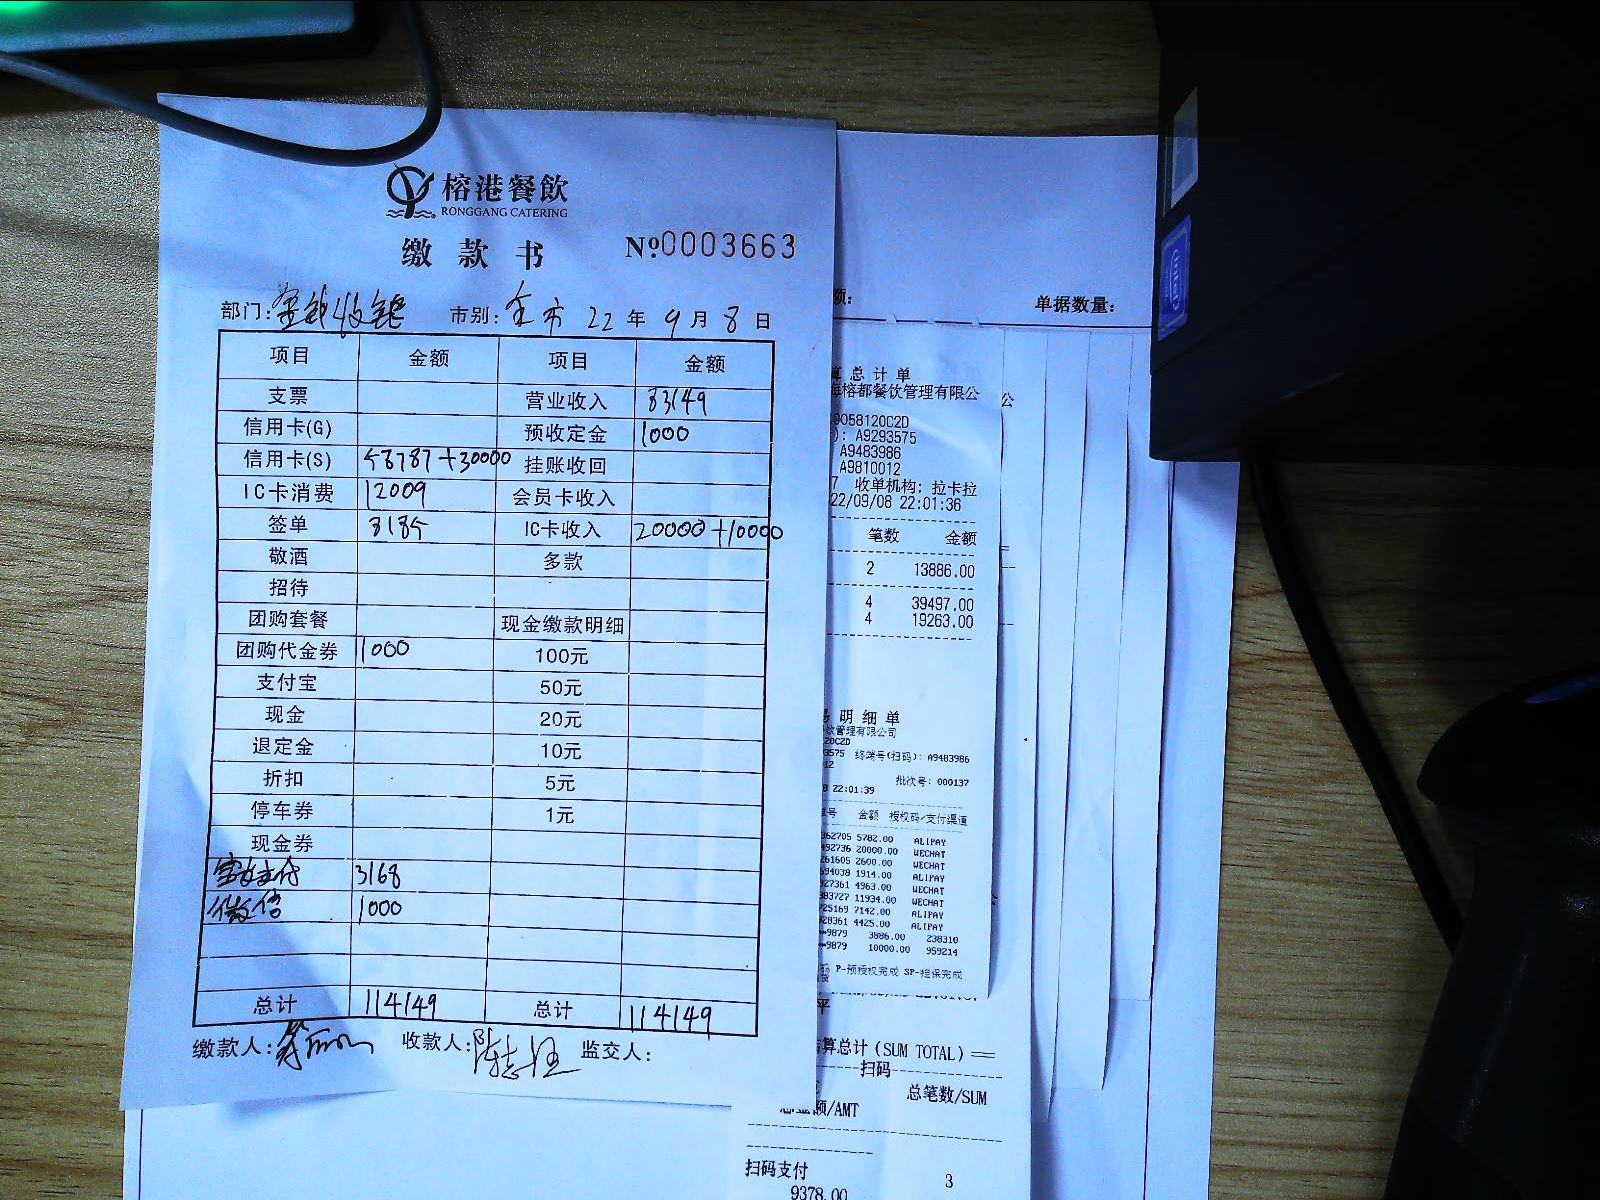 榕港餐飲
RONGGANG CATERING
缴款书 №0003663
部门: 市别:全市 22年9月8日
项目 金额 项目 金额
支票 营业收入 83149
信用卡(G) 预收定金 1000
信用卡(S) 58787+30000 挂账收回
IC卡消费 12009 会员卡收入
签单 8185 IC卡收入 20000+10000
敬酒 多款
招待
团购套餐 现金缴款明细
团购代金券 1000 100元
支付宝 50元
现金 20元
退定金 10元
折扣 5元
停车券 1元
现金券
3168
微信 1000
总计 114149 总计 114149
缴款人: 收款人: 监交人:
额: 单据数量:
算总计单
海榕都餐饮管理有限公
公
9058120C2D
): A9293575
A9483986
A9810012
7 收单机构: 拉卡拉
22/09/08 22:01:36
笔数 金额
2 13886.00
4 39497.00
4 19263.00
易明细单
饮管理有限公司
20C2D
3575 终端号(扫码): A9483986
12
批次号: 000137
8 22:01:39
金额 授权码/支付渠道
362705 5782.00 ALIPAY
492736 20000.00 WECHAT
261605 2600.00 WECHAT
694038 1914.00 ALIPAY
927361 4963.00 WECHAT
383727 11934.00 WECHAT
725169 7142.00 ALIPAY
928361 4425.00 ALIPAY
**9879 3886.00 238310
**9879 10000.00 959214
码 P-预授权完成 SP-担保完成
平
结算总计(SUM TOTAL)===
扫码
总笔数/SUM
总金额/AMT
扫码支付 3
9378.00